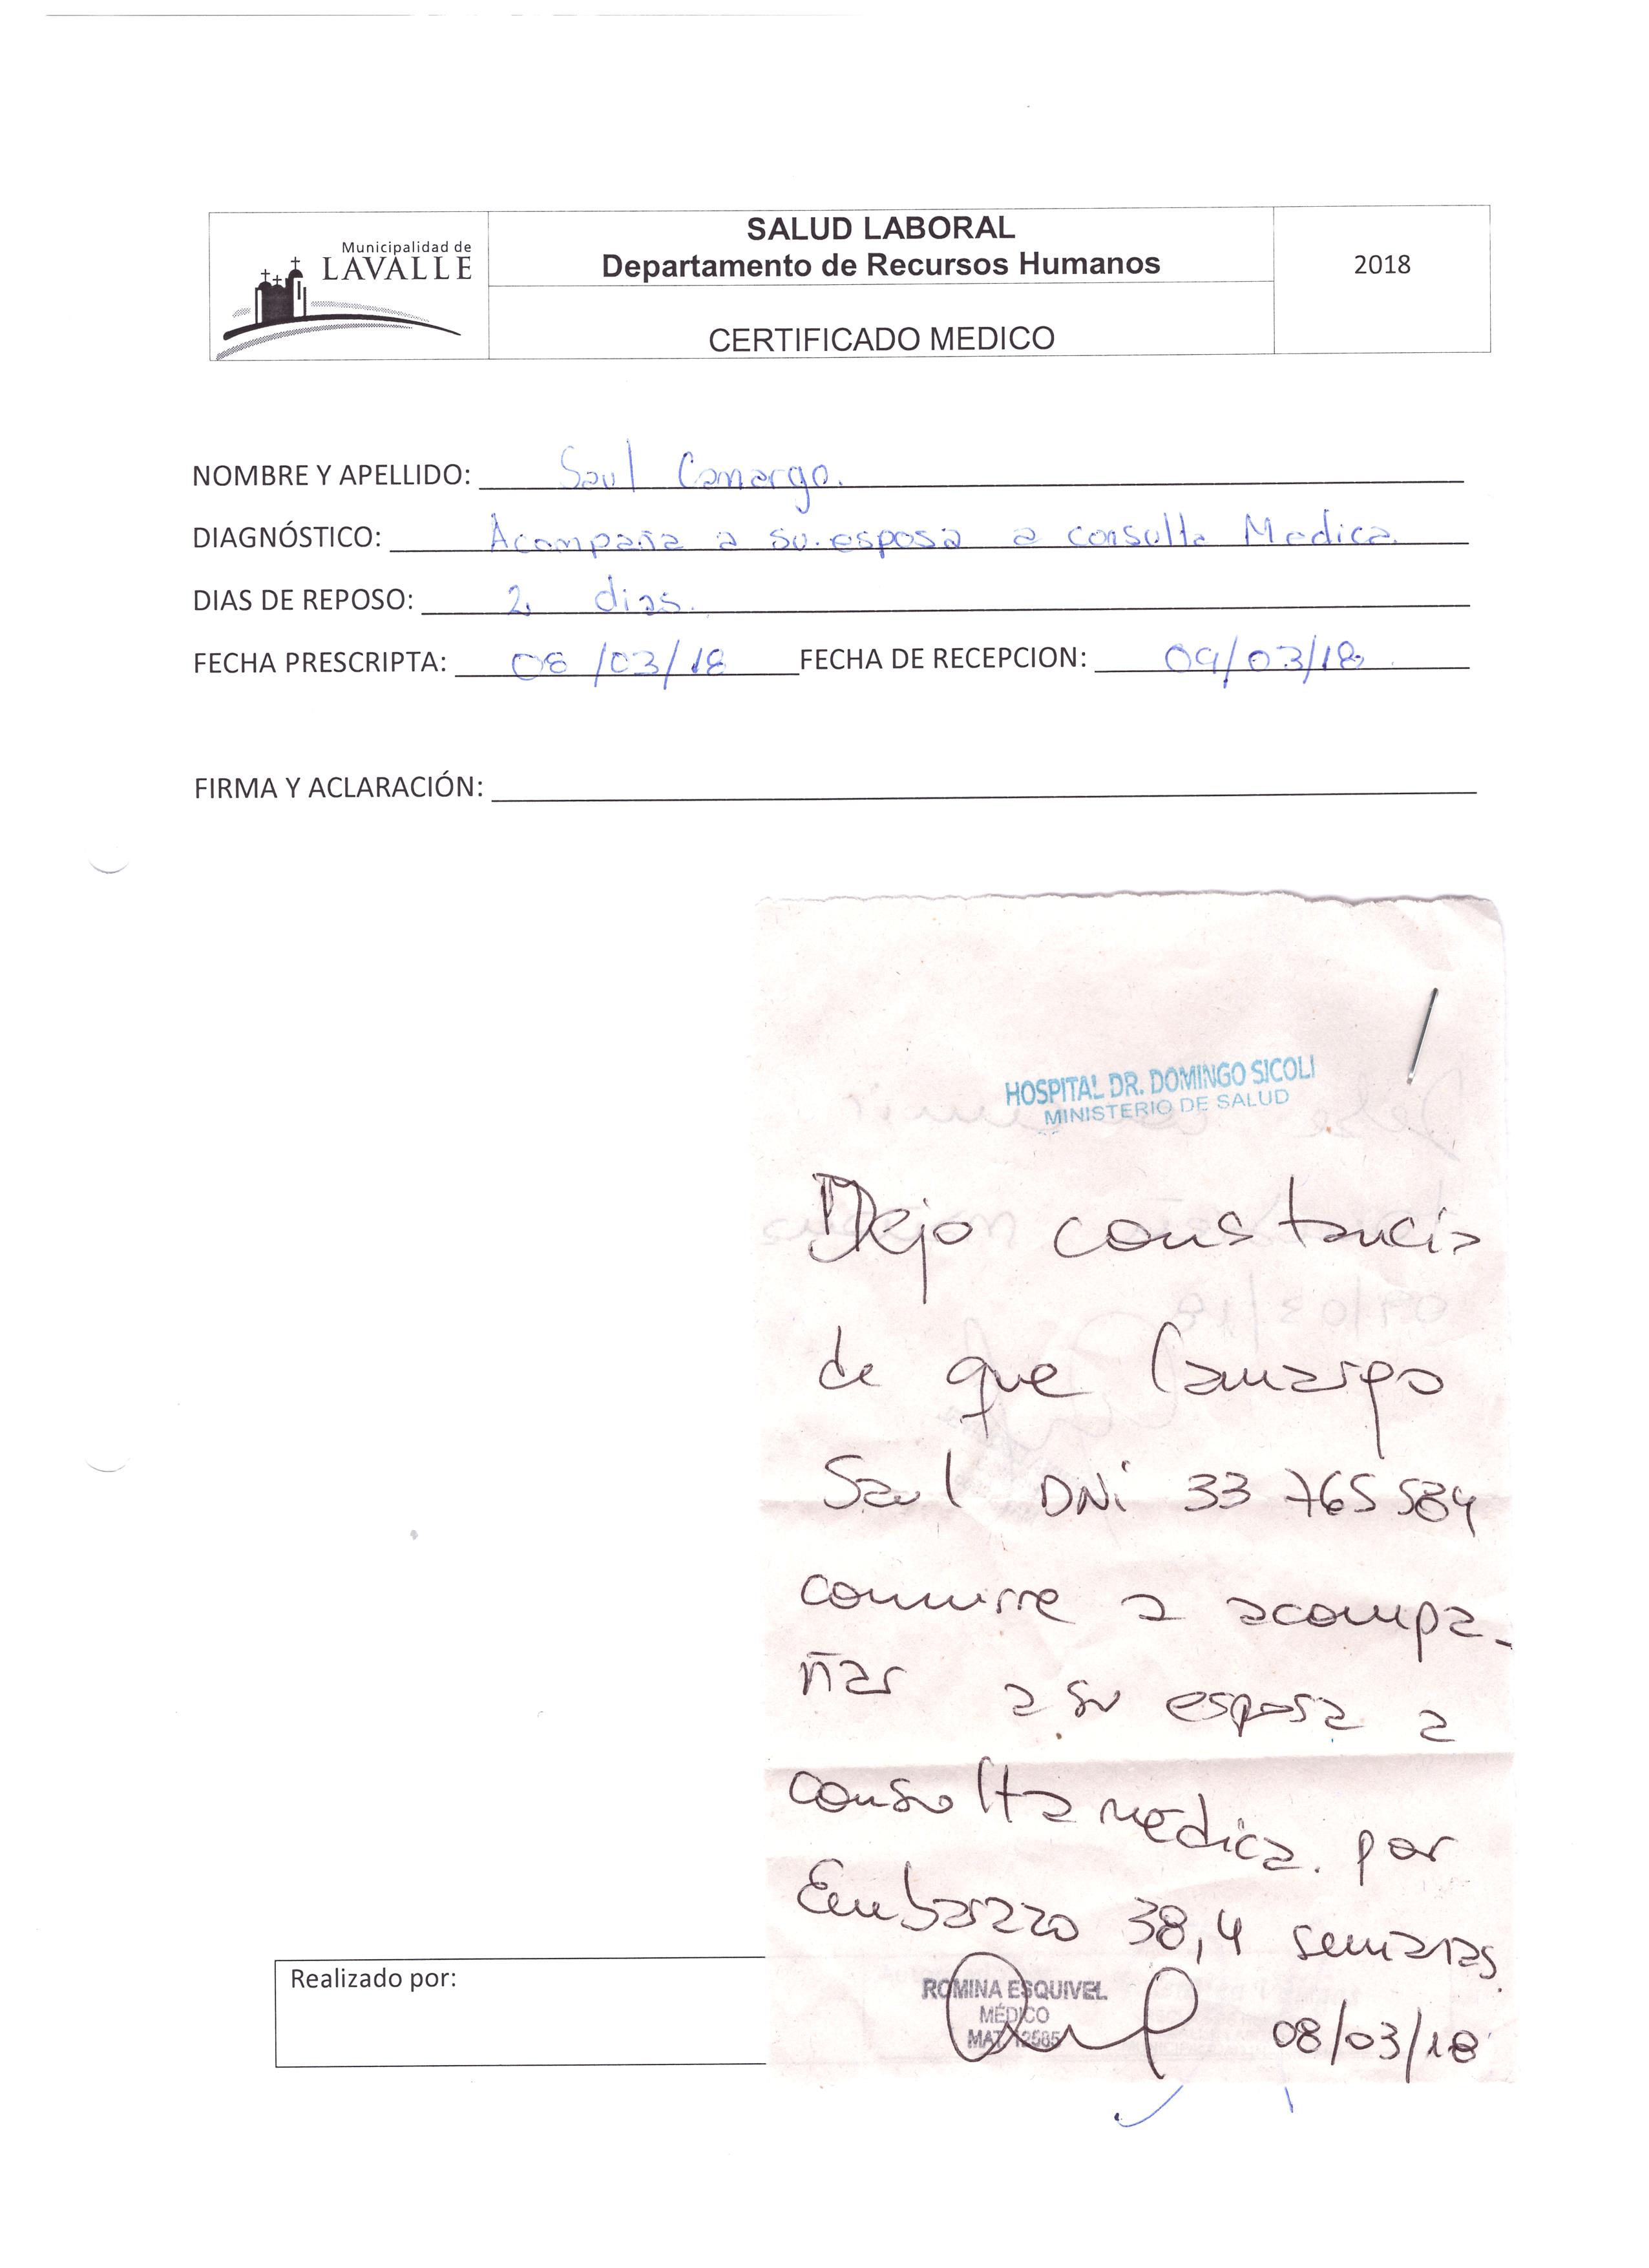 Municipalidad de
LAVALLE
SALUD LABORAL
Departamento de Recursos Humanos
CERTIFICADO MEDICO
2018
NOMBRE Y APELLIDO: Saul Camargo.
DIAGNÓSTICO: Acompaña a su esposa a consulta Medica.
DIAS DE REPOSO: 2 dias.
FECHA PRESCRIPTA: 08/03/18 FECHA DE RECEPCION: 09/03/18
FIRMA Y ACLARACIÓN:
HOSPITAL DR. DOMINGO SICOLI
MINISTERIO DE SALUD
Dejo constancia
de que Camargo
Saul DNI 33 765 584
concurre a acompa-
ñar a su esposa a
consulta medica. por
Embarazo 38,4 semanas.
ROMINA ESQUIVEL
MÉDICO
MAT 12585
08/03/18
Realizado por: